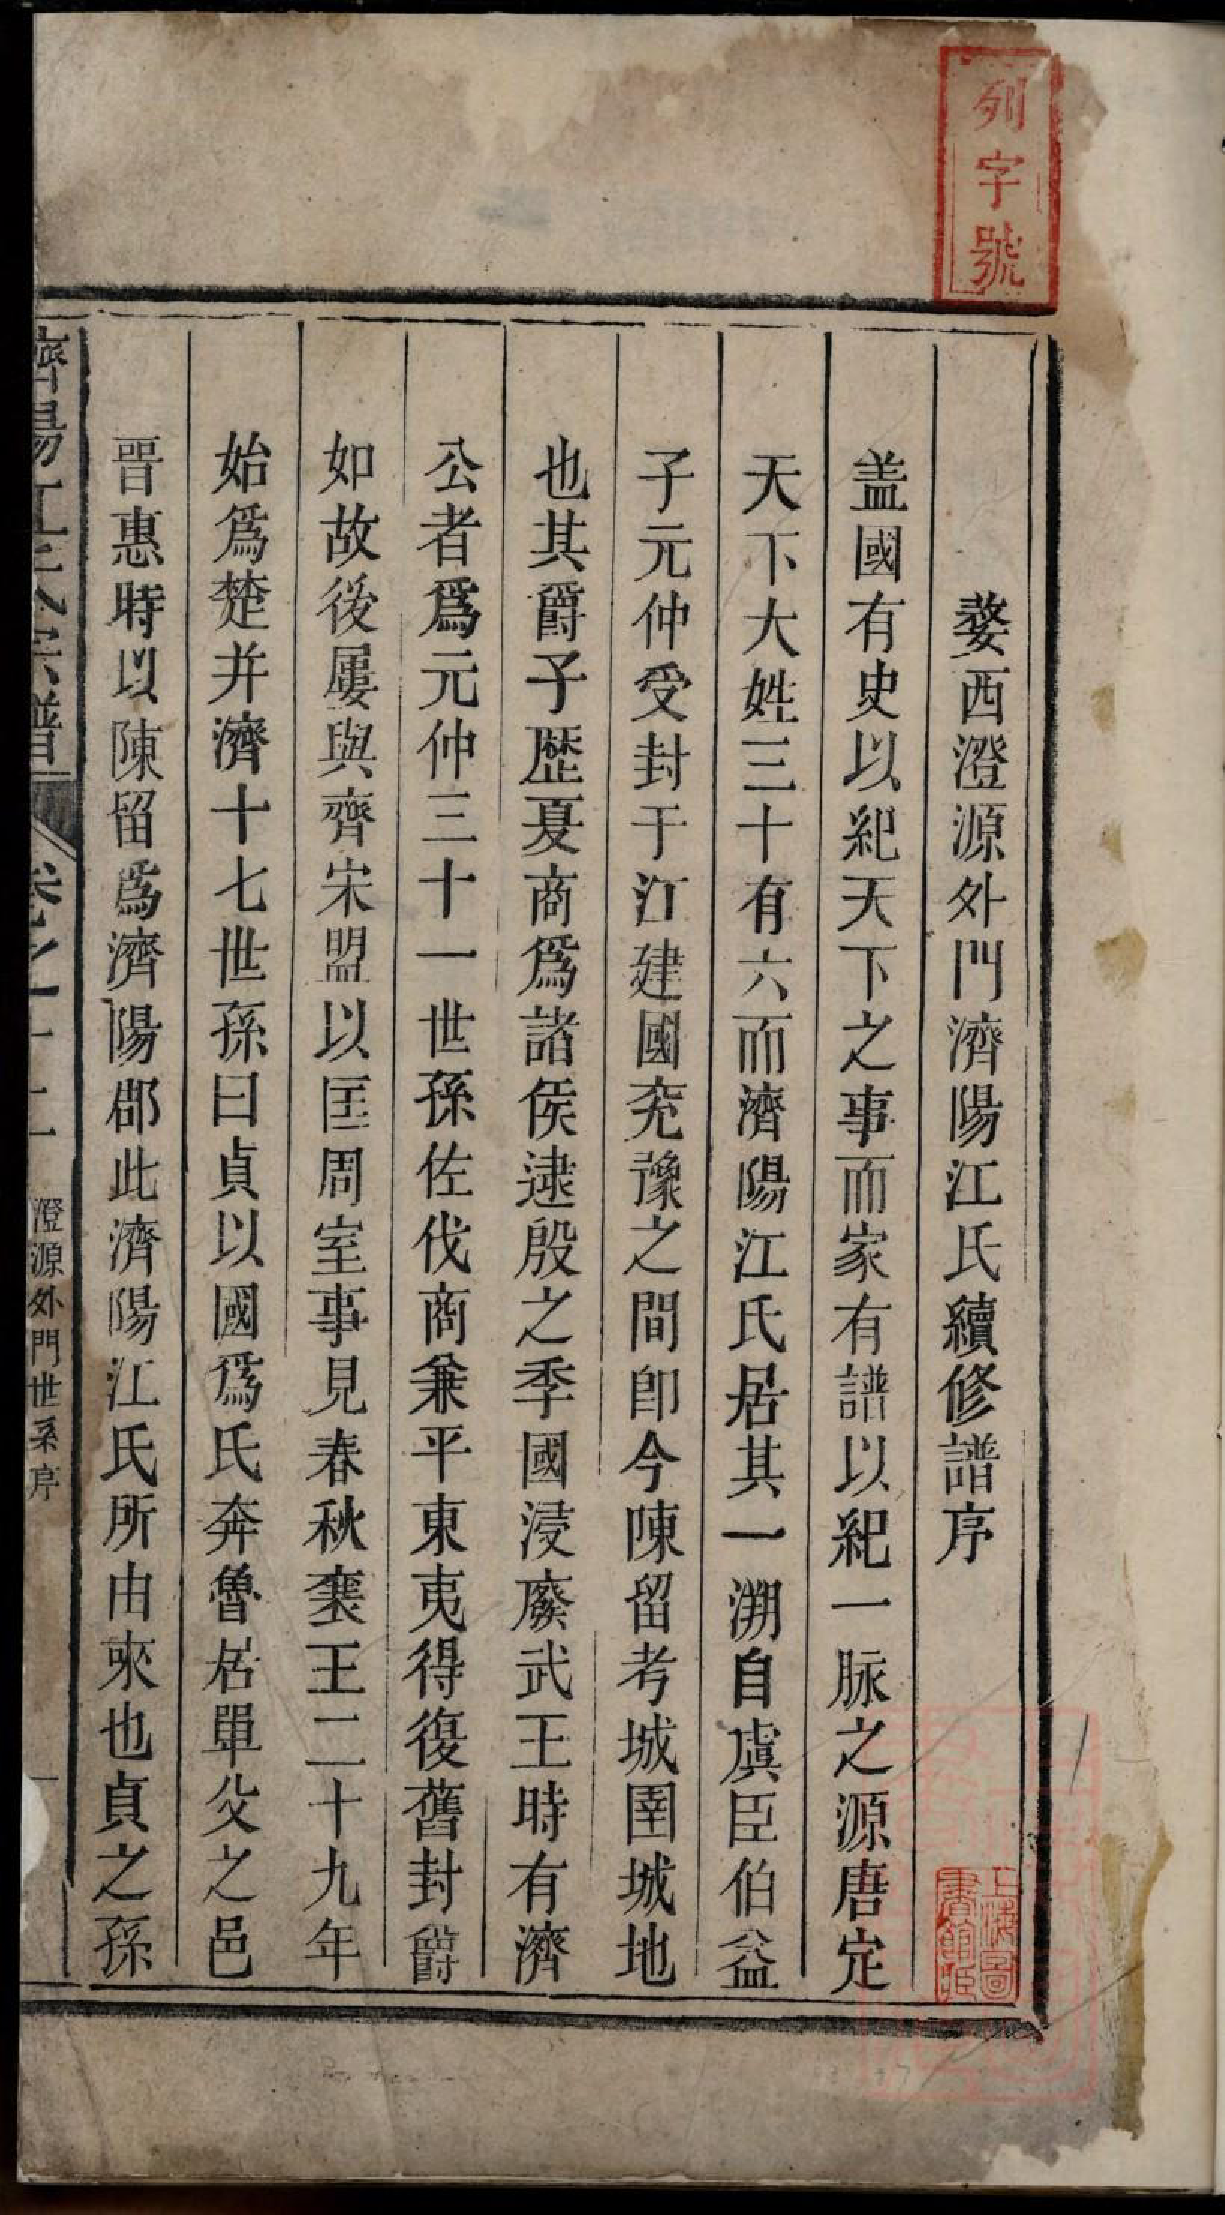 列字號
婺西澄源外門濟陽江氏續修譜序
盖國有史以紀天下之事而家有譜以紀一脉之源唐定
天下大姓三十有六而濟陽江氏居其一溯自虞臣伯益
子元仲受封于江建國兖豫之間卽今陳留考城圉城地
也其爵子歷夏商爲諸侯逮殷之季國浸廢武王時有濟
公者爲元仲三十一世孫佐伐商兼平東夷得復舊封爵
如故後屢與齊宋盟以匡周室事見春秋襄王二十九年
始爲楚并濟十七世孫曰貞以國爲氏奔魯居單父之邑
晋惠時以陳留爲濟陽郡此濟陽江氏所由來也貞之孫
濟陽江氏宗譜 卷之十二 澄源外門世系序 一
上海圖書館藏